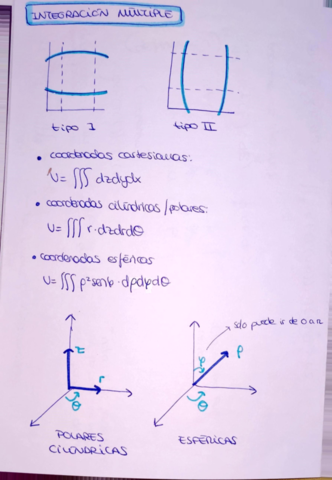 INTEGRACIÓN MÚLTIPLE
tipo I
tipo II
• coordenadas cartesianas:
V = ∭ dzdydx
• coordenadas cilíndricas/polares:
V = ∭ r·dzdrdθ
• coordenadas esféricas
V = ∭ ρ²senφ·dρdφdθ
z
r
θ
POLARES
CILÍNDRICAS
sólo puede ir de 0 a π
φ
ρ
θ
ESFÉRICAS